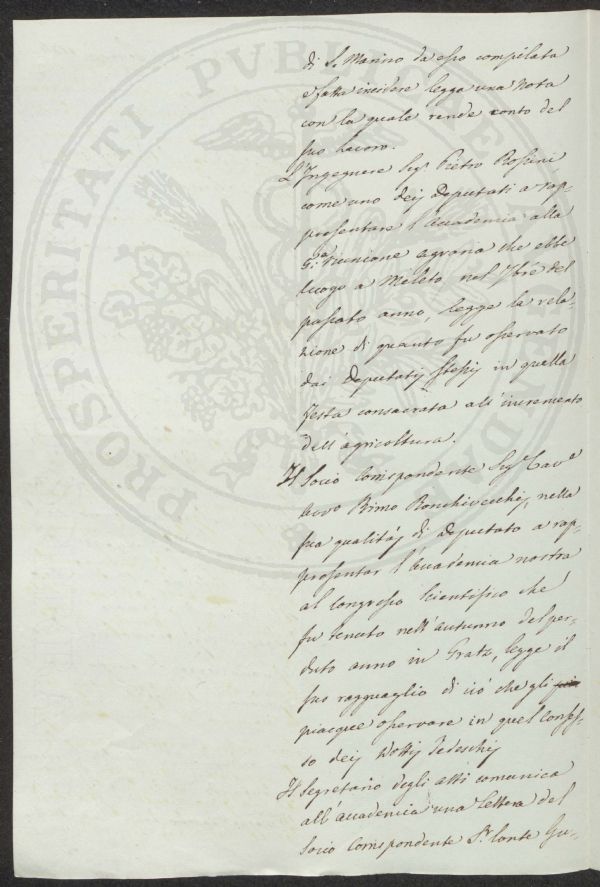 di S. Marino da esso compilata
e fatta incidere legga una Nota
con la quale rende conto del
suo lavoro.
L'Ingegnere Sigr. Pietro Rossini
come uno deij Deputati a rap-
presentare l'Accademia alla
Riunione agraria che ebbe
luogo a Meleto, nel 7bre del
passato anno, legge la rela-
zione di quanto fu osservato
dai Deputatij stessij in quella
festa consacrata all'incremento
dell'agricoltura.
Il Socio Corrispondente Sigr Cave
Avvo Primo Ronchivecchij, nella
sua qualitáj di Deputato a rap-
presentar l'Accademia nostra
al Congresso Scientifico che
fu tenuto nell'autunno del per-
duto anno in Gratz, legge il
suo ragguaglio di ciò che gli
piacque osservare in quel Conses-
so deij Dottij Tedeschij
Il Segretario degli atti comunica
all'accademia una Lettera del
Socio Corrispondente Sr. Conte Gu-
PROSPERITATI PUBLICAE AUGENDAE